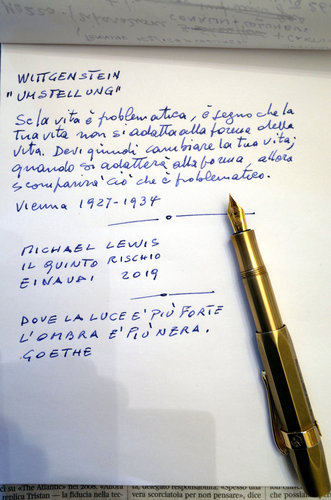 WITTGENSTEIN
"UMSTELLUNG"
Se la vita è problematica, è segno che la
tua vita non si adatta alla forma della
vita. Devi quindi cambiare la tua vita;
quando si adatterà alla forma, allora
scomparirà ciò che è problematico.
Vienna 1927-1934
MICHAEL LEWIS
IL QUINTO RISCHIO
EINAUDI 2019
DOVE LA LUCE E' PIÙ FORTE
L'OMBRA E' PIÙ NERA.
GOETHE
ci su «The Atlantic» nel 2008. «Allora
replica Tristan — la fiducia nella tec-
vera scorciatoia per non pensare», dice